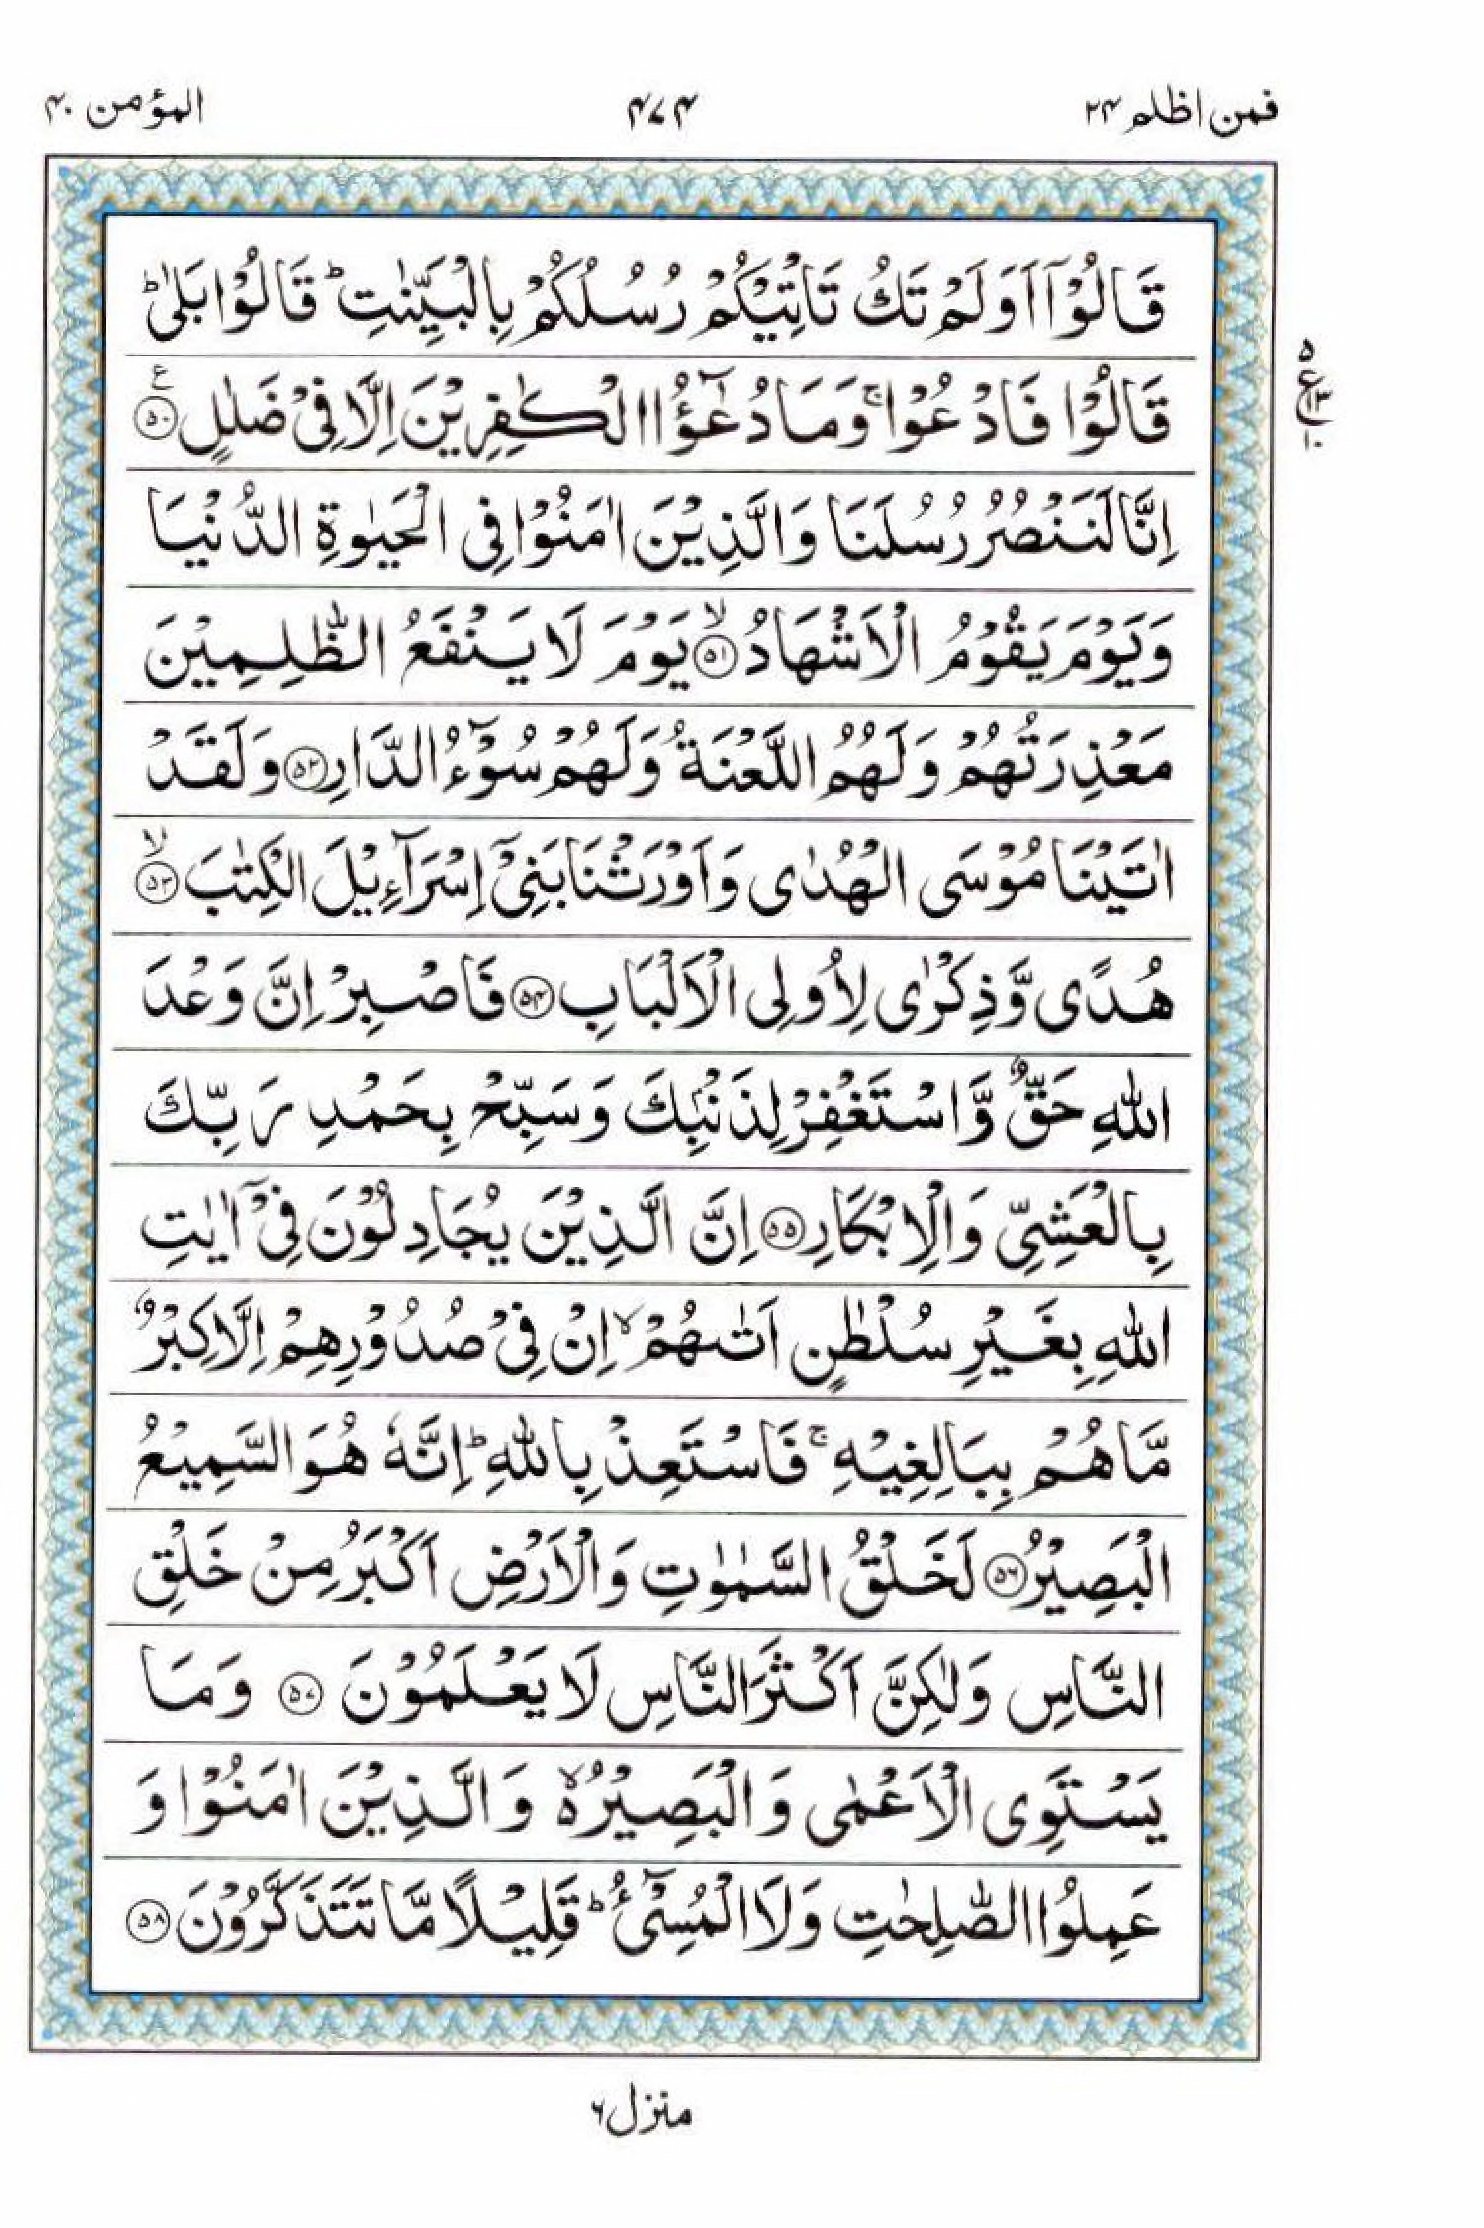 فمن اظلم ۲۴
۴۷۴
المؤمن ۴۰
قَالُوْۤا اَوَلَمْ تَكُ تَاْتِيْكُمْ رُسُلُكُمْ بِالْبَيِّنٰتِ ؕ قَالُوْا بَلٰى ؕ
قَالُوْا فَادْعُوْا ۚ وَمَا دُعٰٓؤُا الْكٰفِرِيْنَ اِلَّا فِيْ ضَلٰلٍ ﴿۵۰﴾ ع
۵
ع ۱۳
۱۰
اِنَّا لَنَنْصُرُ رُسُلَنَا وَالَّذِيْنَ اٰمَنُوْا فِي الْحَيٰوةِ الدُّنْيَا
وَيَوْمَ يَقُوْمُ الْاَشْهَادُ ﴿۵۱﴾ ۙ يَوْمَ لَا يَنْفَعُ الظّٰلِمِيْنَ
مَعْذِرَتُهُمْ وَلَهُمُ اللَّعْنَةُ وَلَهُمْ سُوْٓءُ الدَّارِ ﴿۵۲﴾ وَلَقَدْ
اٰتَيْنَا مُوْسَى الْهُدٰى وَاَوْرَثْنَا بَنِيْۤ اِسْرَآءِيْلَ الْكِتٰبَ ﴿۵۳﴾ ۙ
هُدًى وَّذِكْرٰى لِاُولِي الْاَلْبَابِ ﴿۵۴﴾ فَاصْبِرْ اِنَّ وَعْدَ
اللّٰهِ حَقٌّ وَّاسْتَغْفِرْ لِذَنْۢبِكَ وَسَبِّحْ بِحَمْدِ رَبِّكَ
بِالْعَشِيِّ وَالْاِبْكَارِ ﴿۵۵﴾ اِنَّ الَّذِيْنَ يُجَادِلُوْنَ فِيْۤ اٰيٰتِ
اللّٰهِ بِغَيْرِ سُلْطٰنٍ اَتٰىهُمْ ۙ اِنْ فِيْ صُدُوْرِهِمْ اِلَّا كِبْرٌ
مَّا هُمْ بِبَالِغِيْهِ ۚ فَاسْتَعِذْ بِاللّٰهِ ؕ اِنَّهٗ هُوَ السَّمِيْعُ
الْبَصِيْرُ ﴿۵۶﴾ لَخَلْقُ السَّمٰوٰتِ وَالْاَرْضِ اَكْبَرُ مِنْ خَلْقِ
النَّاسِ وَلٰكِنَّ اَكْثَرَ النَّاسِ لَا يَعْلَمُوْنَ ﴿۵۷﴾ وَمَا
يَسْتَوِي الْاَعْمٰى وَالْبَصِيْرُ ۙ۬ وَالَّذِيْنَ اٰمَنُوْا وَ
عَمِلُوا الصّٰلِحٰتِ وَلَا الْمُسِيْٓءُ ؕ قَلِيْلًا مَّا تَتَذَكَّرُوْنَ ﴿۵۸﴾
منزل ۶